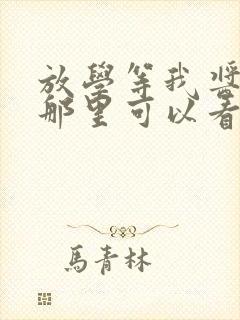 放學等我
那里可以看
馬青林